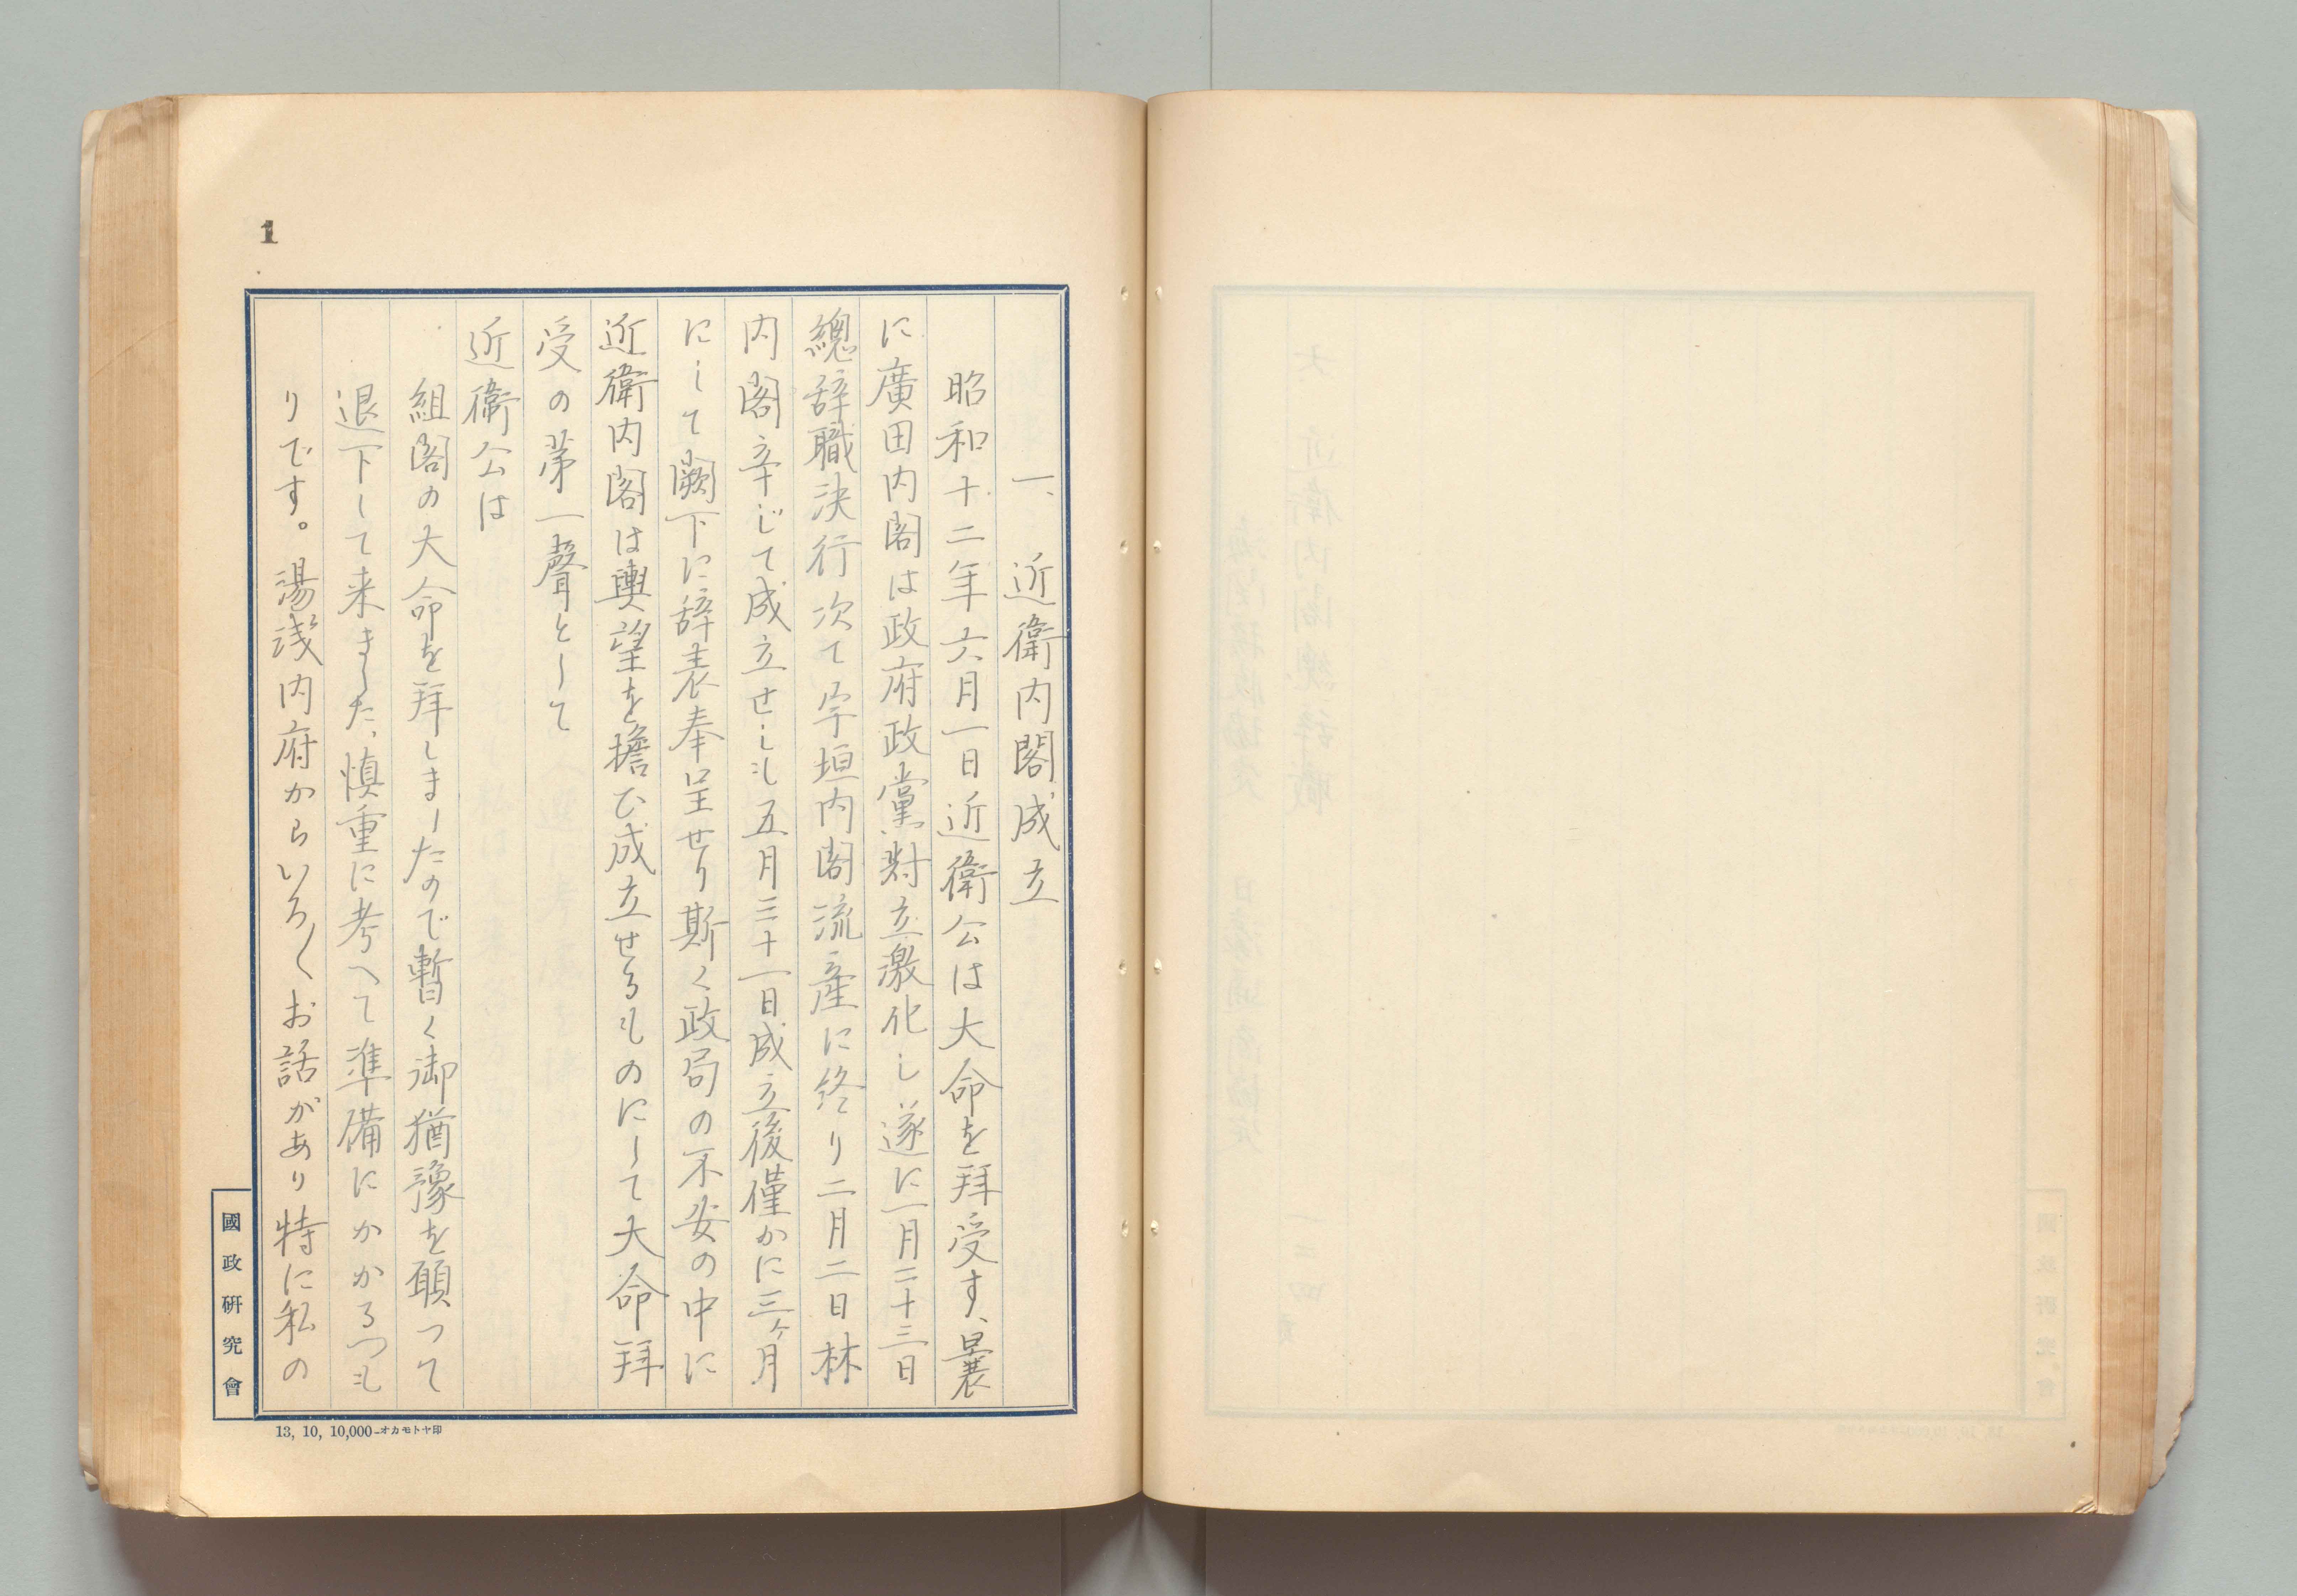 一、近衛内閣成立
昭和十二年六月一日近衛公は大命を拝受す、曩
に廣田内閣は政府政黨對立激化し遂に一月二十三日
總辞職決行次て宇垣内閣流産に終り二月二日林
内閣辛じて成立せしも五月三十一日成立後僅かに三ヶ月
にして闕下に辞表奉呈せり斯く政局の不安の中に
近衛内閣は輿望を擔ひ成立せるものにして大命拝
受の第一聲として
近衛公は
組閣の大命を拝しましたので暫く御猶豫を願つて
退下して来ました、慎重に考へて準備にかかるつも
りです。湯浅内府からいろ〱お話があり特に私の
1
國政研究會
13, 10, 10,000-オカモトヤ印